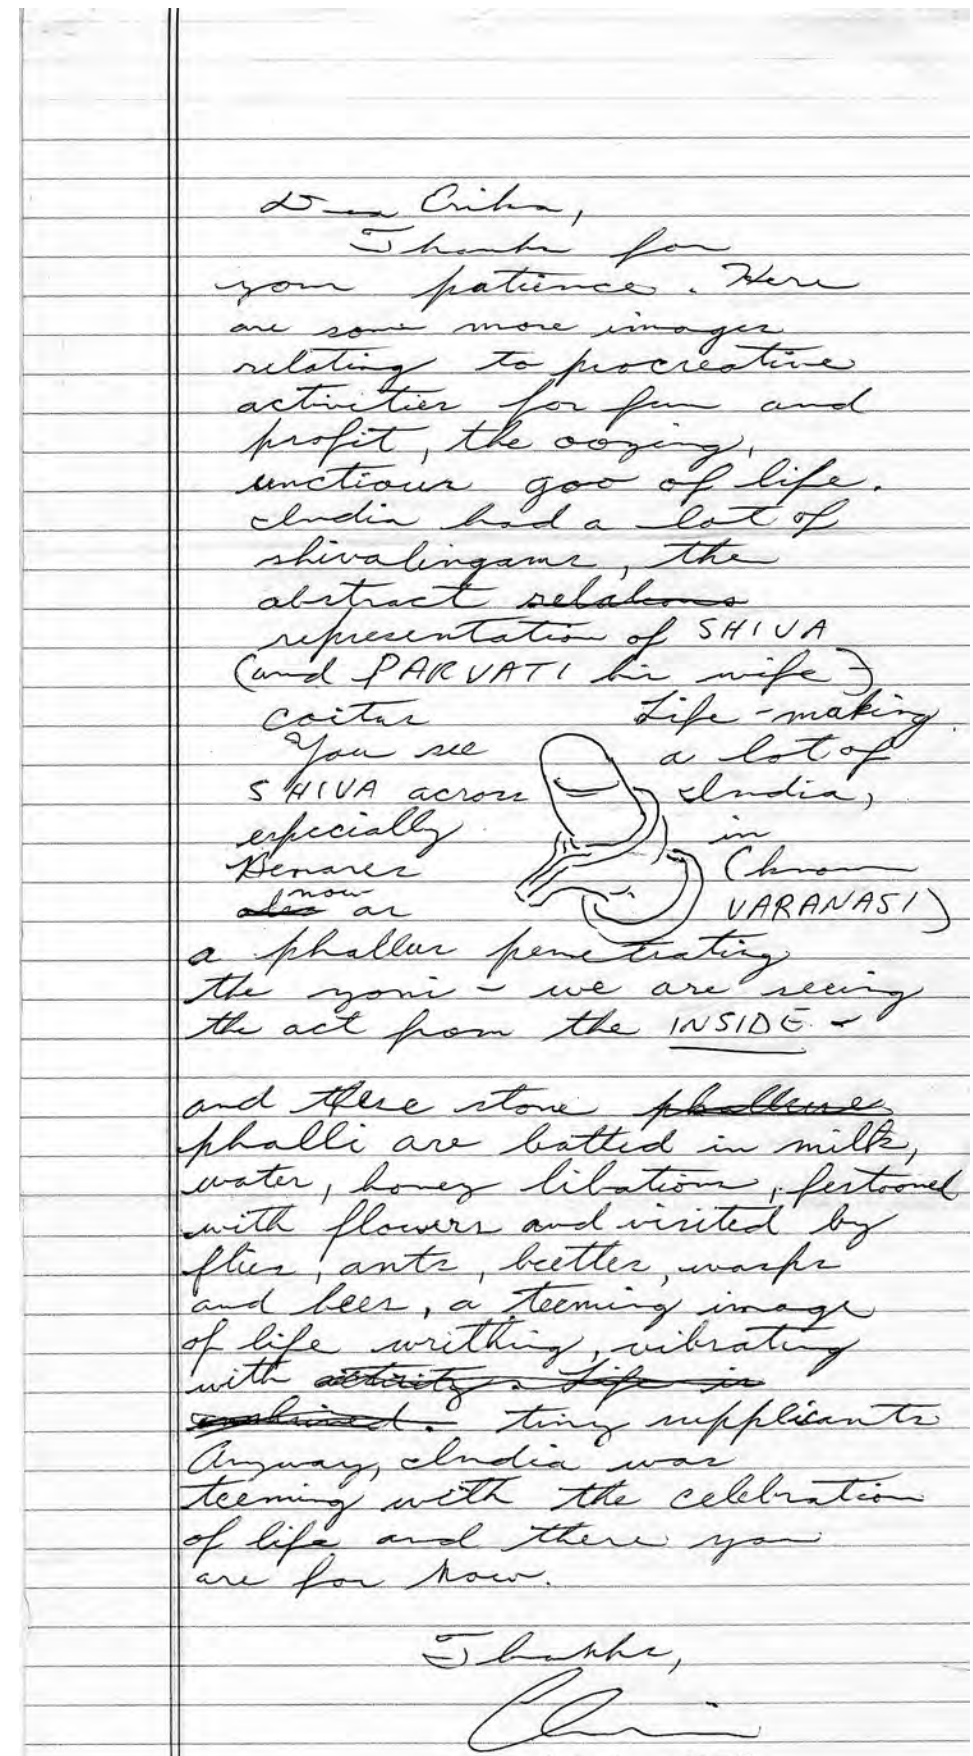 Dear Erika,
Thanks for
your patience. Here
are some more images
relating to procreative
activities for fun and
profit, the oozing,
unctious goo of life.
India had a lot of
shivalingams, the
abstract relations
representation of SHIVA
(and PARVATI his wife)
coitus Life-making.
You see a lot of
SHIVA across India,
especially in
Benares (known
now
also as VARANASI)
a phallus penetrating
the yoni - we are seeing
the act from the INSIDE -
and these stone
phalli are batted in milk,
water, honey libations, festooned
with flowers and visited by
flies, ants, beetles, wasps
and bees, a teeming image
of life writhing, vibrating
with activity. Life is
tiny supplicants
Anyway, India was
teeming with the celebration
of life and there you
are for now.
Thanks,